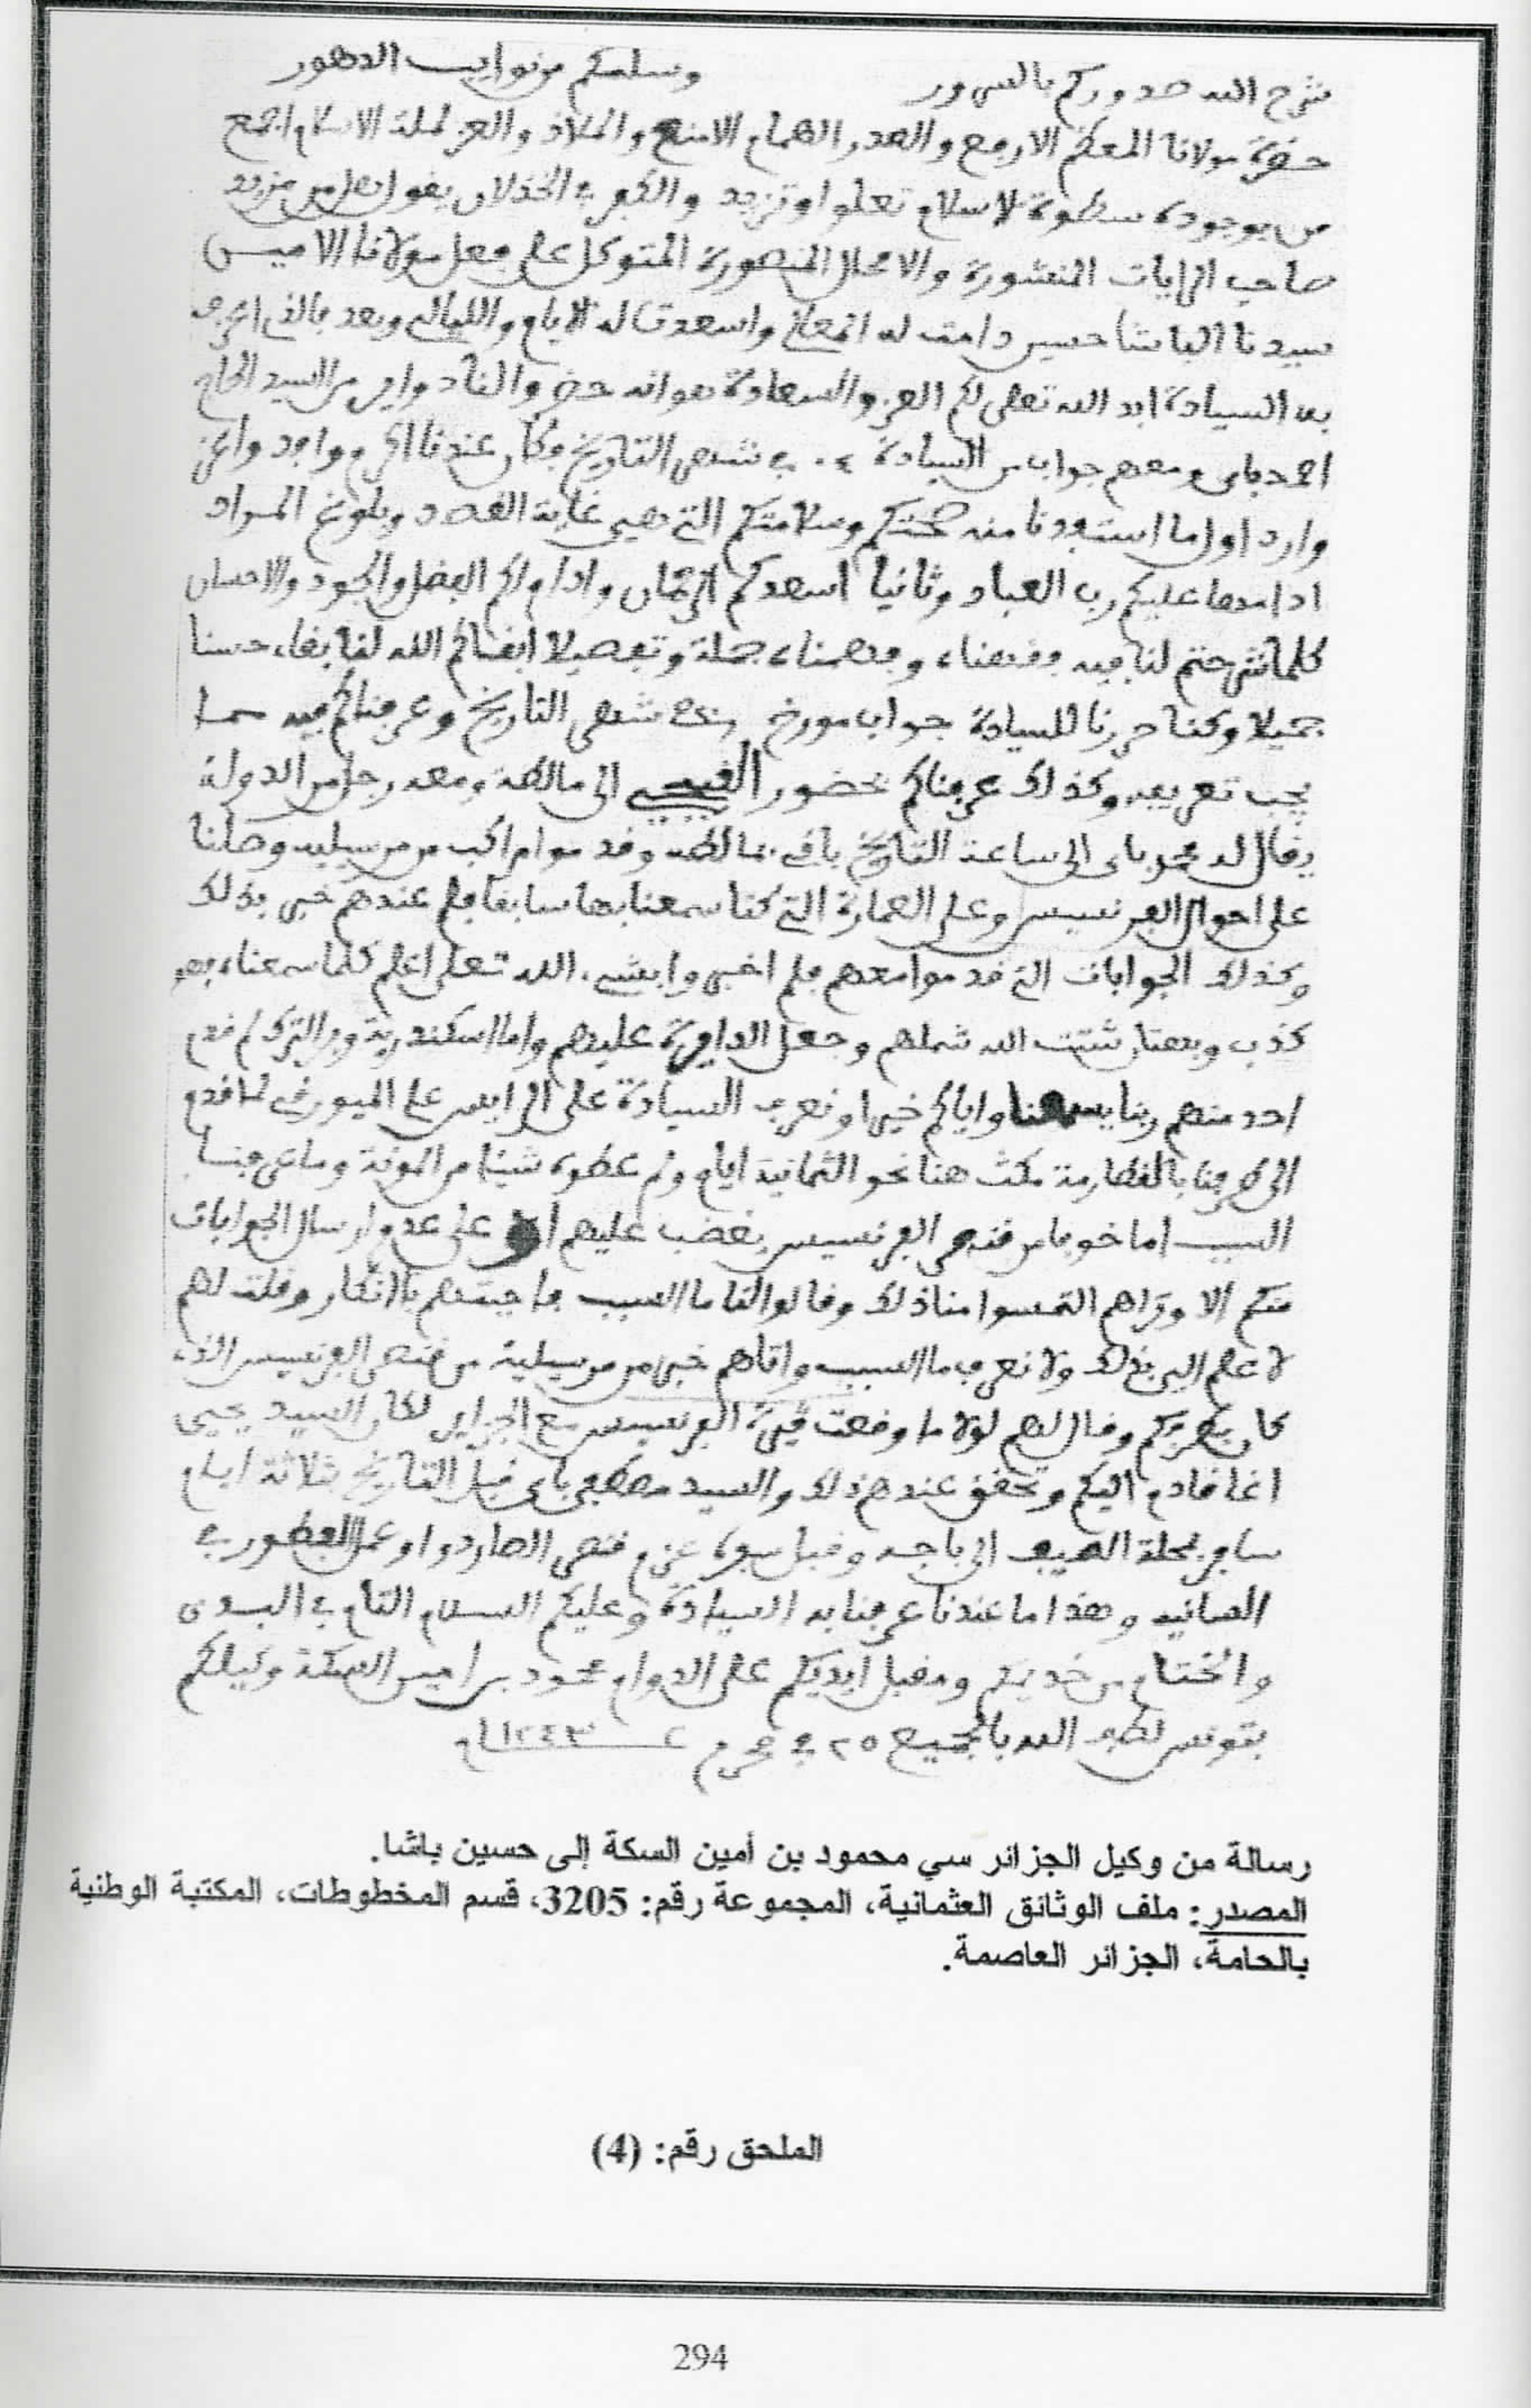 شرح الله صدوركم بالسرور وسلمكم من نوايب الدهور
حضرة مولانا المعظم الارفع والصدر الهمام الامنع والملاذ والعز لملة الاسلام اجمع
من بوجوده سطوة الاسلام تعلوا وتزيد والكفر في الخذلان يقول هل من مزيد
صاحب الرايات المنشورة والامحال المنصورة المتوكل على فعل مولانا الامين
سيدنا الباشا حسين دامت له المعالي واسعدت له الايام والليالي وبعد فالذي
به السيادة ابد الله تعلى لكم العز والسعادة هو انه حضروا لنا من السيد الحاج
احمد باي ومعهم جواب من السيادة في شهر التاريخ فكان عندنا اكرم وافد واعز
وارد اول ما استفدنا منه صحتكم وسلامتكم التي هي غاية القصد وبلوغ المراد
ادامها عليكم رب العباد وثانيا اسعدكم الزمان وادام لكم الفضل والجود والاحسان
كلما شرحتم لنا فيه وفهمناه جملة وتفصيلا ابقاكم الله لنا بقاء حسنا
جميلا وكنا حررنا للسيادة جواب مورخ شهر التاريخ وعرفناكم فيه بما
يجب تعريفه وكذلك عرفناكم بحضور الى مالطة ومعه رجل من الدولة
يقال له محمد باي الى ساعة التاريخ باقي بمالطه وقدموا مراكب من مرسيليه وصلنا
على احوال الفرنسيس وعلى العمارة التي كنا سمعنا بها سابقا فلم عندهم خبر بذلك
وكذلك الجوابات التي قدموا معهم فلم اخبروا بشيء الله تعلى اعلم كلما سمعناه فهو
كذب وبهتان شتت الله شملهم وجعل الدايرة عليهم واما اسكندرية وبر الترك لم قدم
احد منهم ربنا يسمعنا واياكم خيرا ونعرف السيادة على الرايس علي الميورقي لما قدم
الى طرفنا مكث هنا نحو الثمانية ايام ولم عطوه شيئا من المونة وما عرفنا
السبب اما خوفا من قنصر الفرنسيس يغضب عليهم او على عدم ارسال الجوابات
منكم الا وتراهم التمسوا منا ذلك وقالوا لنا ما السبب فاجبتهم بالانكار وقلت لهم
لا علم لي بذلك ولا نعرف ما السبب واتاهم خبر من مرسيلية من قنصر الفرنسيس الذي
كان بطرفكم وقال لهم لولا ما وقعت الفرنسيس مع الجزاير لكان السيد يحيى
اغا قادم اليكم وتحقق عندهم ذلك والسيد مصطفى باي قبل التاريخ ثلاثة ايام
سافر بمحلة الصيف الى باجه وقبل سفره عزم قنصر وعمل الفطور في
وهذا ما عندنا عرفنا به السيادة وعليكم السلام التام في البدء
والختام من خديمكم ومقبل ايديكم على الدوام محمود بن امين السكة وكيلكم
بتونس لطف الله بالجميع ٢٥ في محرم ١٢٤٣
رسالة من وكيل الجزائر سي محمود بن أمين السكة إلى حسين باشا.
المصدر: ملف الوثائق العثمانية، المجموعة رقم: 3205، قسم المخطوطات، المكتبة الوطنية
بالحامة، الجزائر العاصمة.
الملحق رقم: (4)
294